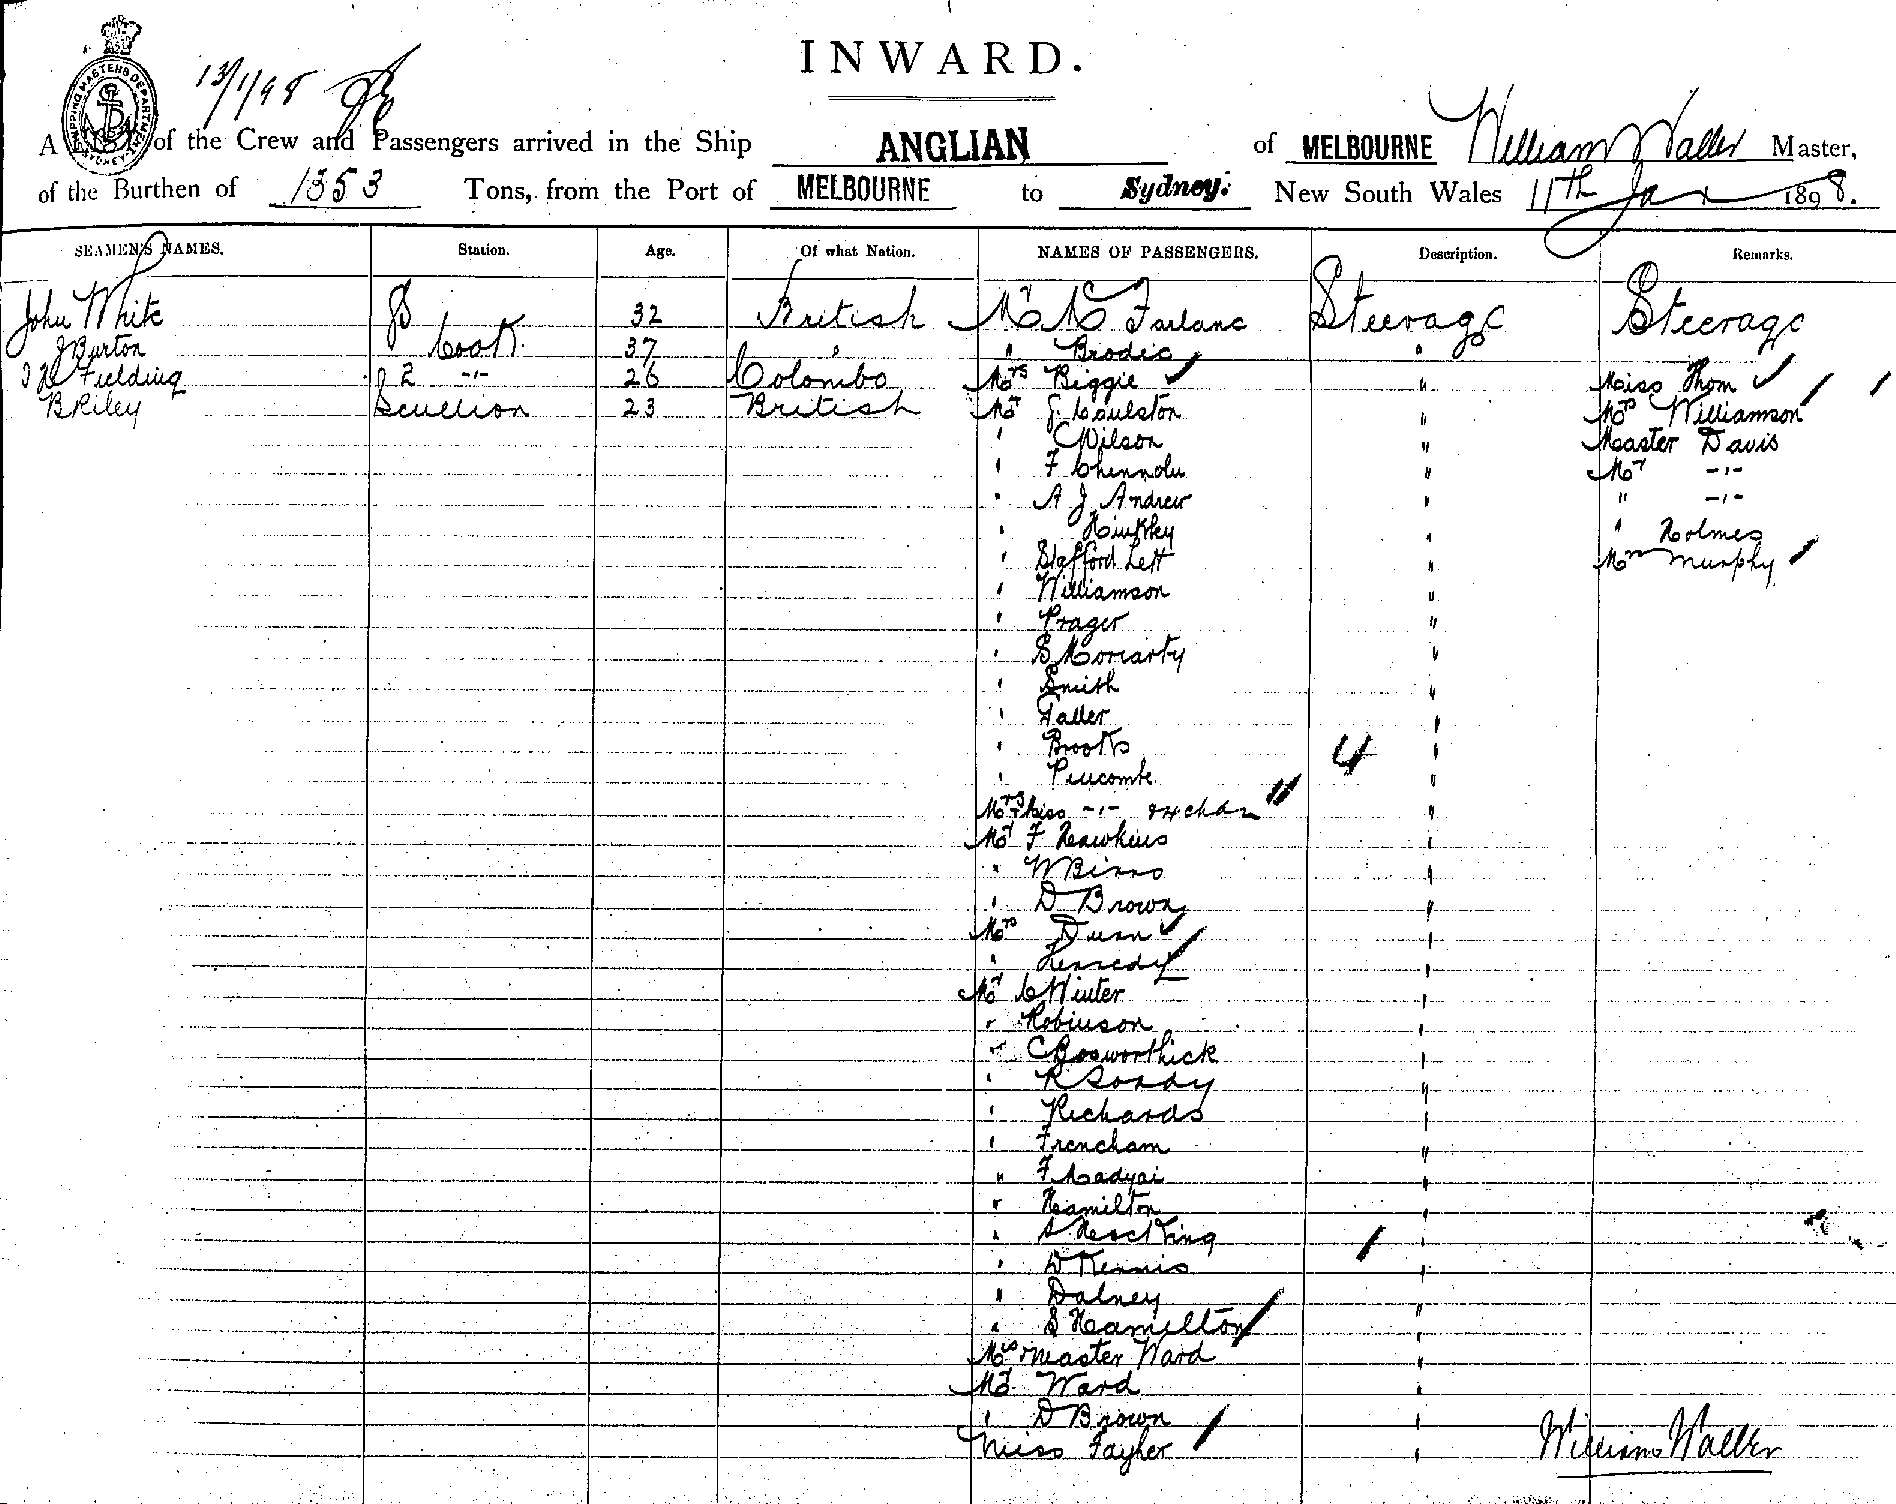 INWARD.
13/1/98
SHIPPING MASTERS DEPARTMENT SYDNEY
A LIST of the Crew and Passengers arrived in the Ship ANGLIAN of MELBOURNE William Waller Master,
of the Burthen of 1353 Tons, from the Port of MELBOURNE to Sydney. New South Wales 11th Jan 1898.
SEAMEN'S NAMES. Station. Age. Of what Nation. NAMES OF PASSENGERS. Description. Remarks.
John White 32 British Mr Mc Farlane Steerage Steerage
J Burton Cook 37 " " Brodie "
Fielding 2 -"- 26 Colombo Mrs Biggie " Miss Thom
B Riley Scullion 23 British Mr J. Coulston " Mrs Williamson
" C Wilson " Master Davis
" F " Mr -"-
" A J Andrew " " -"-
" Hinkley " " Holmes
" Stafford Lett " Mrs Murphy
" Williamson "
" Prager "
" S Moriarty "
" Smith "
" Faller "
" Brooks 4 "
" "
Mrs + Miss -"- "
Mr F Hawkins "
" W Binns "
" D Brown "
Mrs Dunn "
" Kennedy "
Mr C Winter "
" Robinson "
" C Bosworthick "
" R "
" Richards "
" Frencham "
" F "
" Hamilton "
" "
" D Kennis "
" Dalney "
" S Hamilton "
Mrs + Master Ward "
Mr Ward "
" D Brown "
Miss Fayher "
William Waller